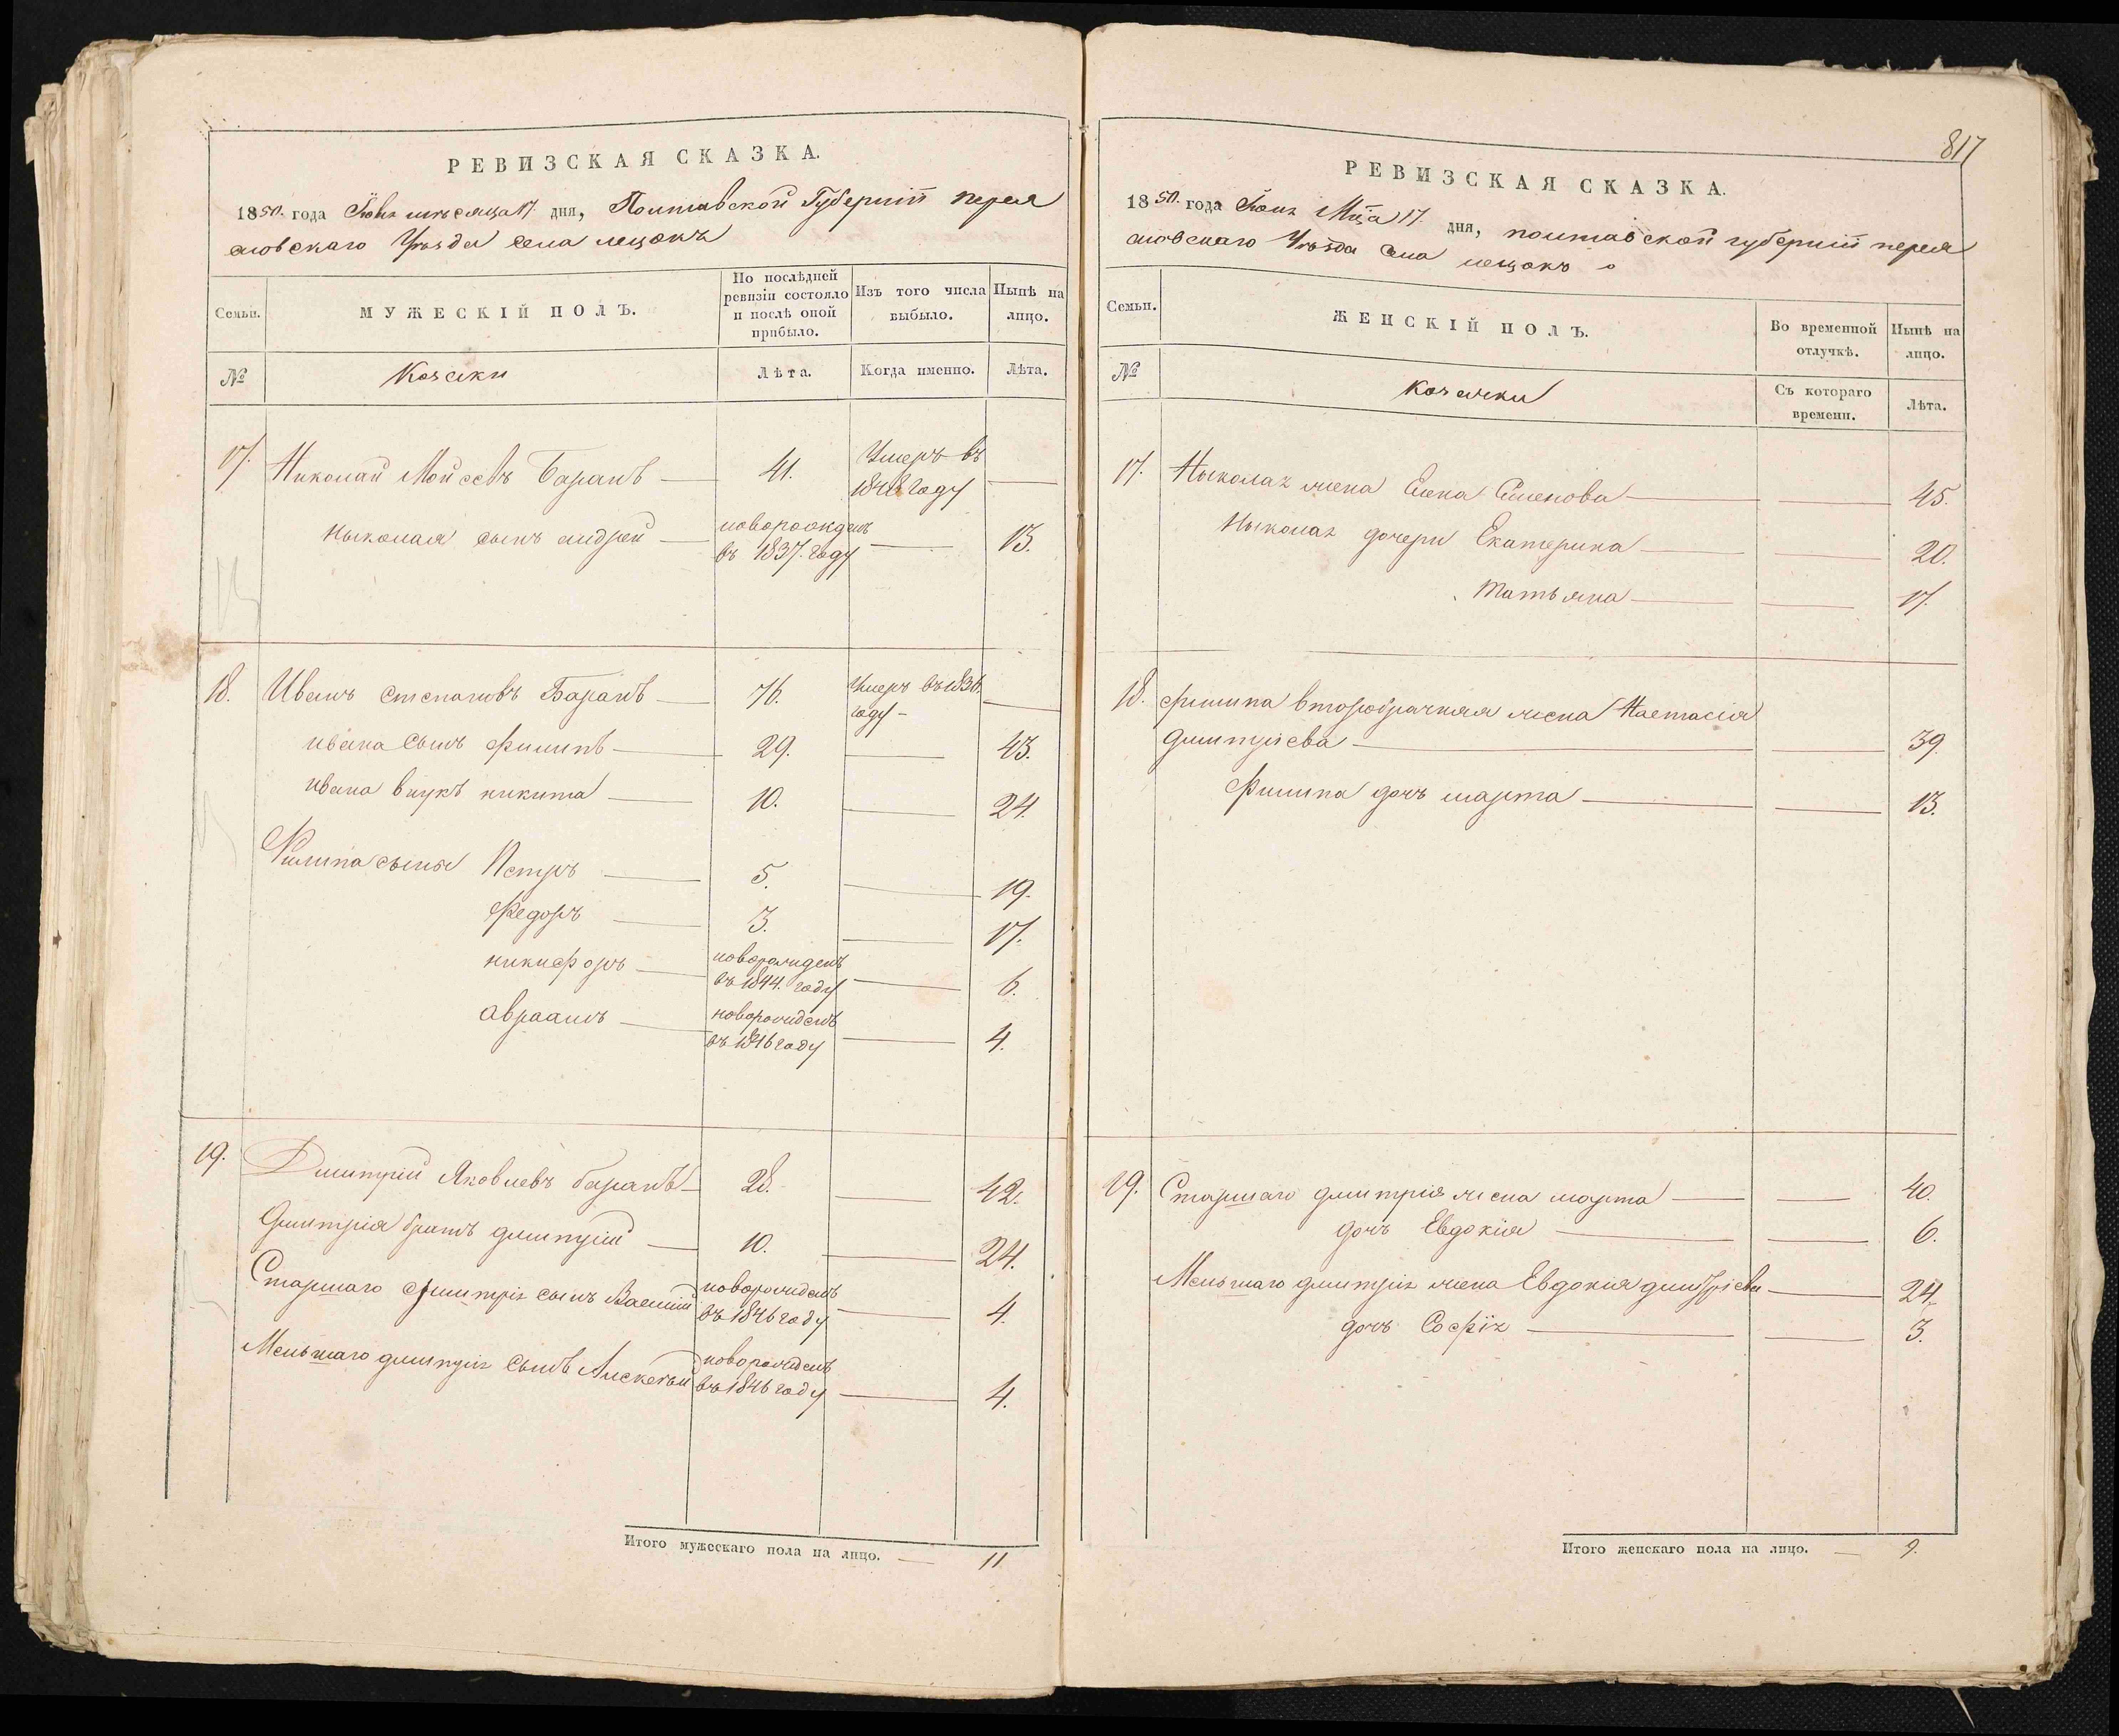 РЕВИЗСКАЯ СКАЗКА.
1850. года Іюня месяца 17. дня, Полтавской Губерніи перея
славскаго Уѣзда села лецокъ
Семьи.
МУЖЕСКІЙ ПОЛЪ.
По послѣдней ревизіи состояло и послѣ оной прибыло.
Изъ того числа выбыло.
Нынѣ на лицо.
№
Козаки
Лѣта.
Когда именно.
Лѣта.
17. Николай Мойсеевъ Баранъ — 41. Умеръ въ
184 году —
Ныколая сынъ андрей — новорожденъ
въ 1837. году — 13.
18. Иванъ степановъ Баранъ — 76. Умеръ въ 1836.
году — —
ивана сынъ филипъ — 29. — 43.
ивана внукъ никита — 10. — 24.
Филипа сыны Петръ — 5. — 19.
Федоръ — 3. — 17.
никифоръ — новорожденъ
въ 1844. году — 6.
авраамъ — новорожденъ
въ 1846 году — 4.
19. Димитрий Яковлевъ баранъ — 28. — 42.
Димитрія братъ димитрий — 10. — 24.
Старшаго димитрія сынъ Василий новорожденъ
въ 1846 году — 4.
Меньшаго димитрія сынъ Алексѣй новорожденъ
въ 1846 году — 4.
Итого мужескаго пола на лицо. — 11
817
РЕВИЗСКАЯ СКАЗКА.
1850. года Іюня Мца 17. дня, полтавской губерніи перея
славскаго Уѣзда села лецокъ
Семьи.
ЖЕНСКІЙ ПОЛЪ.
Во временной отлучкѣ.
Нынѣ на лицо.
№
Козачки
Съ котораго времени.
Лѣта.
17. Ныколая жена Елена Семенова — — 45.
Ныколая дочери Екатерина — — 20.
Татьяна — — 17.
18. филипа второбрачная жена Настасія
Димитріева — — 39
Филипа дочъ марта — — 13.
19. Старшаго димитрія жена марта — — 40.
дочъ Евдокія — — 6.
Меньшаго димитрія жена Евдокия димитріева — 24.
дочъ Софія — — 3.
Итого женскаго пола на лицо. — 9.